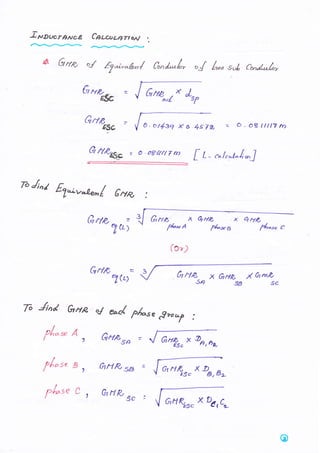 INDUCTANCE CALCULATION :
GMR of Equivalent Conductor of two sub Conductor
GMR_ESC = √ GMR_sub × d_sp
GMR_ESC = √ 0.01439 × 0.4572 = 0.0811117 m
GMR_ESC = 0.0811117 m [L - calculation]
To find Equivalent GMR :
GMR_eq(L) = ³√ GMR_phase A × GMR_phase B × GMR_phase C
(Or)
GMR_eq(L) = ³√ GMR_SA × GMR_SB × GMR_SC
To find GMR of each phase group :
phase A , GMR_SA = √ GMR_ESC × D_A1A2
phase B , GMR_SB = √ GMR_ESC × D_B1B2
phase C , GMR_SC = √ GMR_ESC × D_C1C2